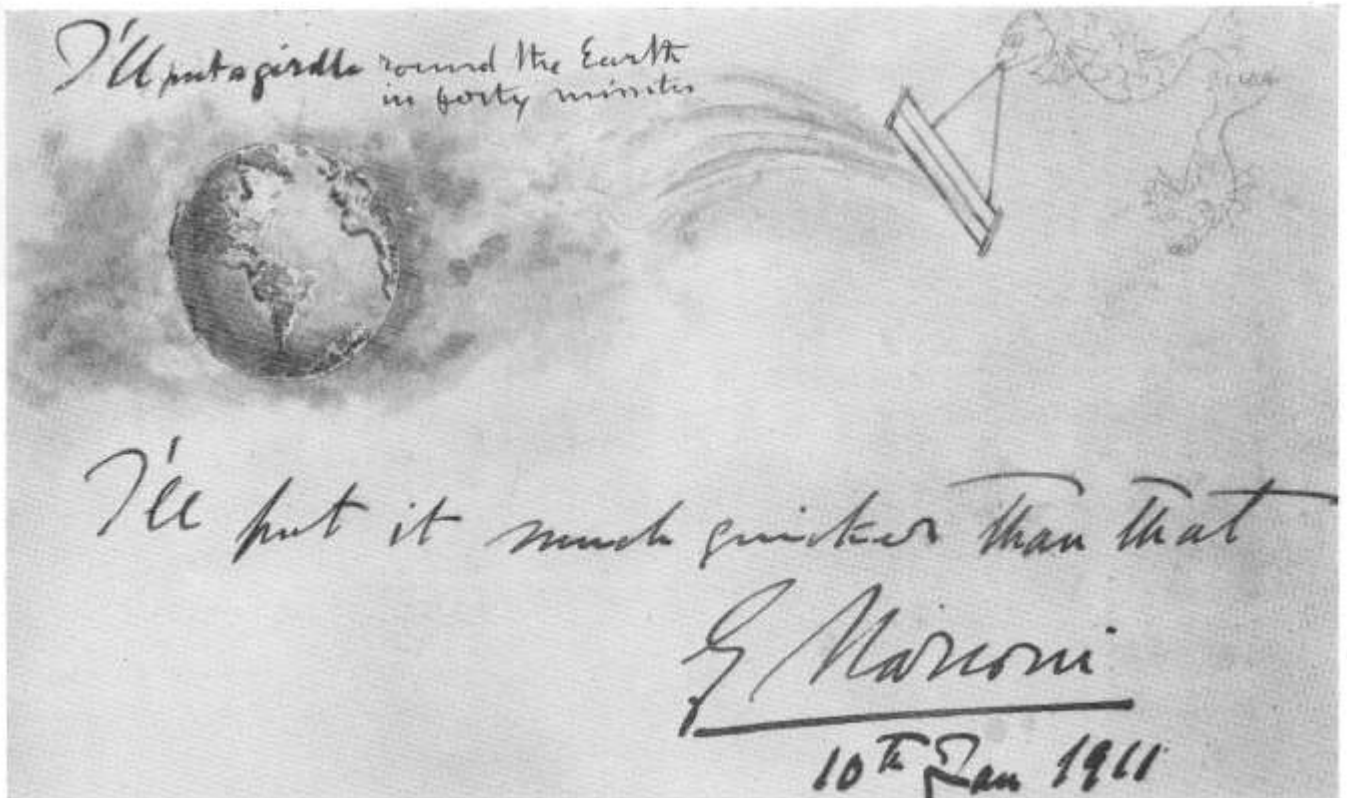 I'll put a girdle round the Earth
in forty minutes
I'll put it much quicker than that
G Marconi
10th Jan 1911